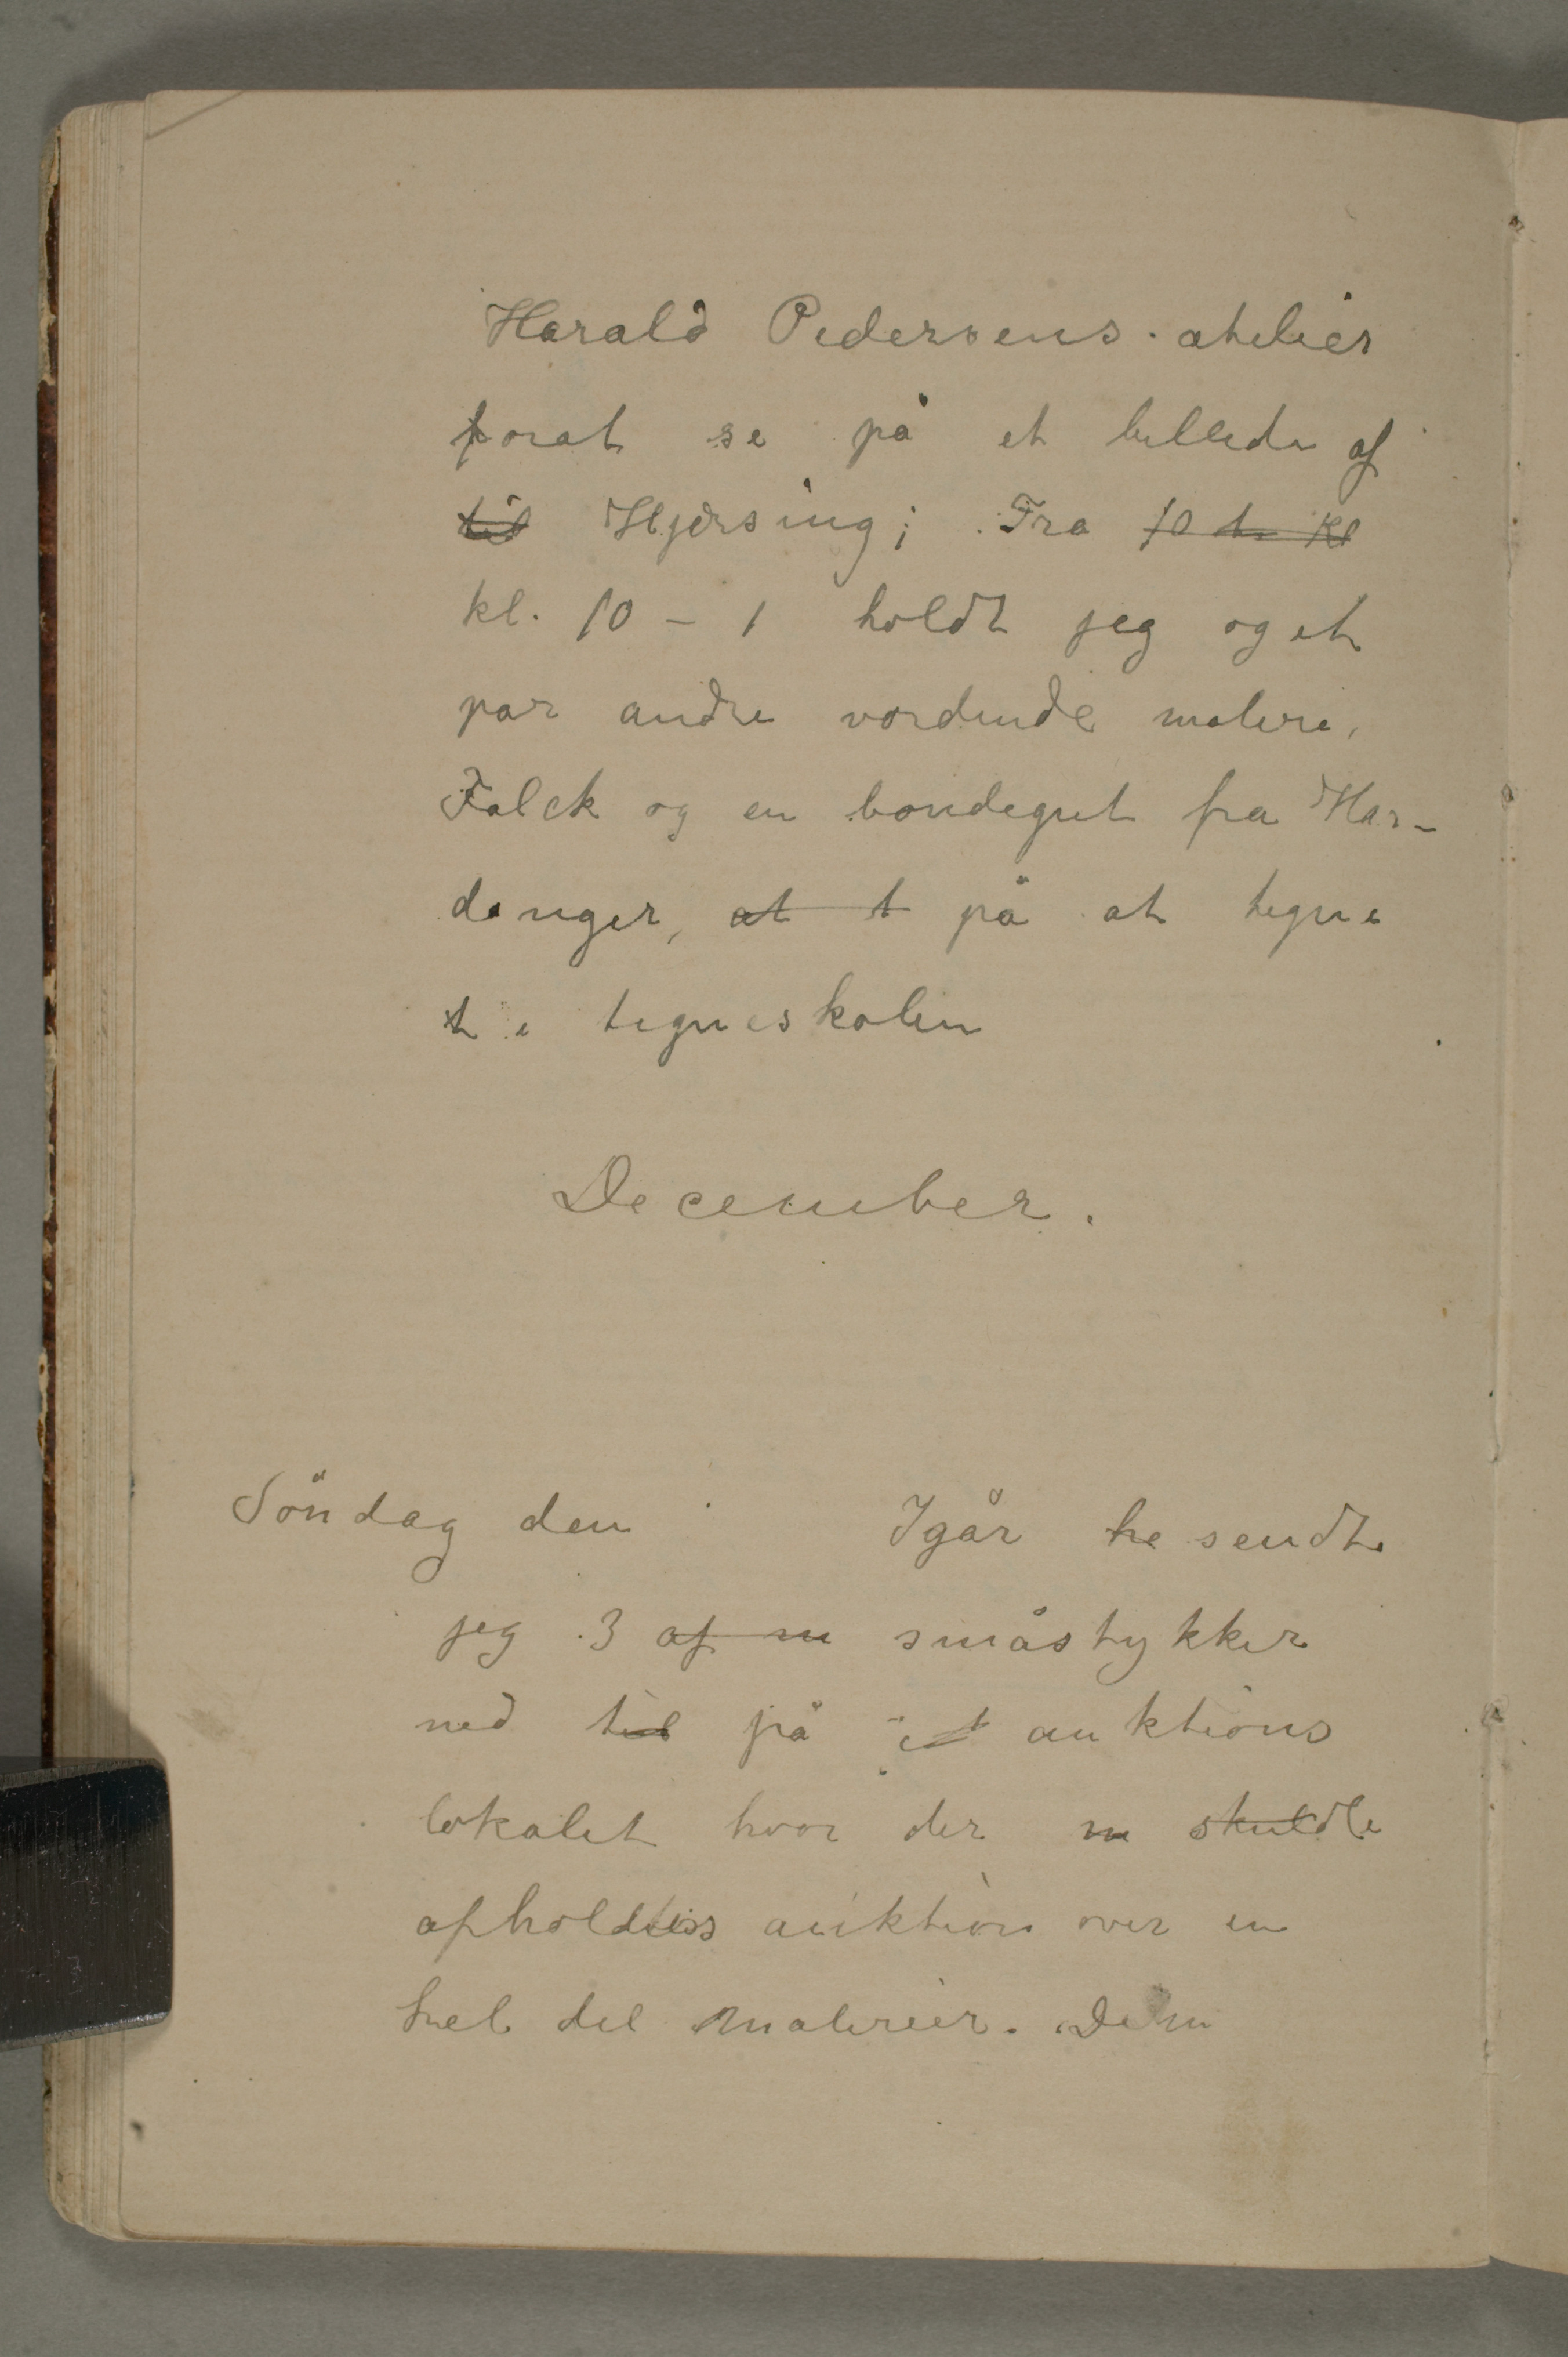 Harald Pedersens atelier
forat se på et billede af
til Hjersing; Fra 10 t Kl
kl. 10 – 1 holdt jeg og et
par andre vordende malere,
Falck og en bondegut fra Har-
danger, at t på at tegne
t i tegneskolen
December.
Söndag den Igår he sendte
jeg 3 af m småstykker
ned til på et auktions
lokalet hvor der skuldle
afholdes auktion over en
hel del malerier. Dem